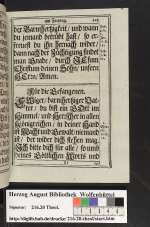 am Sontag. 225
der Barmhertzigkeit, und wann
du jemand betrübt hast, so er-
freuest du ihn hernach wider,
dann nach der Züchtigung findet
man Gnade, durch JEsum
Christum deinen Sohn, unsern
HErrn, Amen.
Für die Gefangenen.
EWiger, barmhertziger Vat-
ter, du bist ein GOtt im
Himmel, und Herrscher in allen
Königreichen, in deiner Hand
ist Macht und Gewalt, niemand
der wider dich stehen mag,
Ich bitte dich für alle, so umb
deines Göttlichen Worts und
Herzog August Bibliothek Wolfenbüttel
Signatur: 216.28 Theol.
http://diglib.hab.de/drucke/216-28-theol/start.htm